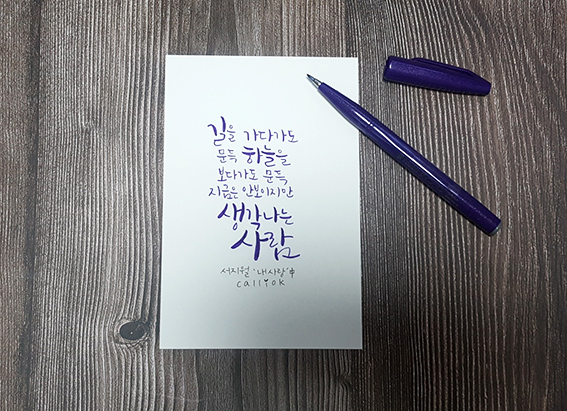 길을 가다가도
문득 하늘을
보다가도 문득
지금은 안보이지만
생각나는
사람
서지월 '내사랑' 中
callyok